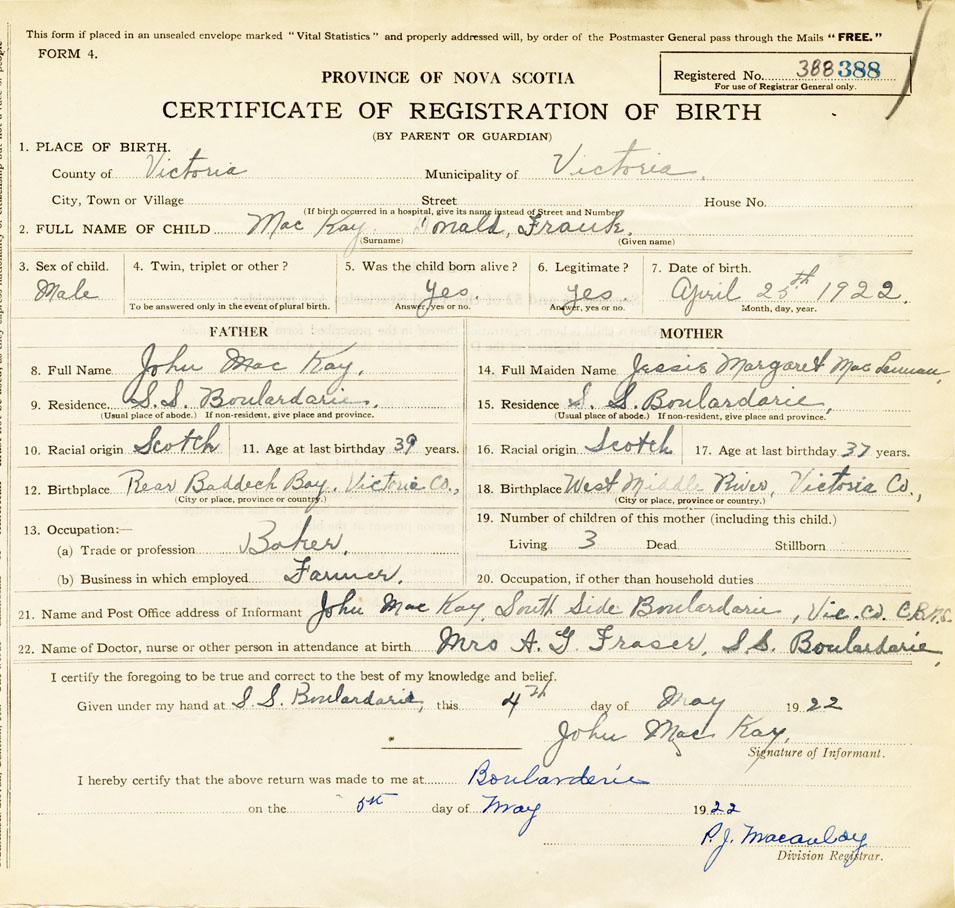 This form if placed in an unsealed envelope marked "Vital Statistics" and properly addressed will, by order of the Postmaster General pass through the Mails "FREE."
FORM 4.
Registered No. 388 388
For use of Registrar General only.
PROVINCE OF NOVA SCOTIA
CERTIFICATE OF REGISTRATION OF BIRTH
(BY PARENT OR GUARDIAN)
1. PLACE OF BIRTH.
County of Victoria Municipality of Victoria.
City, Town or Village Street House No.
(If birth occurred in a hospital, give its name instead of Street and Number)
2. FULL NAME OF CHILD Mac Kay. Donald, Frank.
(Surname) (Given name)
3. Sex of child. 4. Twin, triplet or other? 5. Was the child born alive? 6. Legitimate? 7. Date of birth.
Male yes. yes. April 25th 1922.
To be answered only in the event of plural birth. Answer, yes or no. Answer, yes or no. Month, day, year.
FATHER MOTHER
8. Full Name John Mac Kay. 14. Full Maiden Name Jessie Margaret Mac Lennan,
9. Residence S.S. Boulardarie. 15. Residence S. S. Boulardarie,
(Usual place of abode.) If non-resident, give place and province. (Usual place of abode.) If non-resident, give place and province.
10. Racial origin Scotch 11. Age at last birthday 39 years. 16. Racial origin Scotch 17. Age at last birthday 37 years.
12. Birthplace Rear Baddeck Bay, Victoria Co., 18. Birthplace West Middle River, Victoria Co.,
(City or place, province or country.) (City or place, province or country.)
13. Occupation:— 19. Number of children of this mother (including this child.)
(a) Trade or profession Baker. Living 3 Dead Stillborn
(b) Business in which employed Farmer. 20. Occupation, if other than household duties
21. Name and Post Office address of Informant John Mac Kay, South Side Boulardarie, Vic. Co. C.B. N.S.
22. Name of Doctor, nurse or other person in attendance at birth Mrs A. G. Fraser, S.S. Boulardarie,
I certify the foregoing to be true and correct to the best of my knowledge and belief.
Given under my hand at S.S. Boulardarie, this 4th day of May 1922
John Mac Kay.
Signature of Informant.
I hereby certify that the above return was made to me at Boularderie
on the 5th day of May 1922
P. J. Macaulay
Division Registrar.